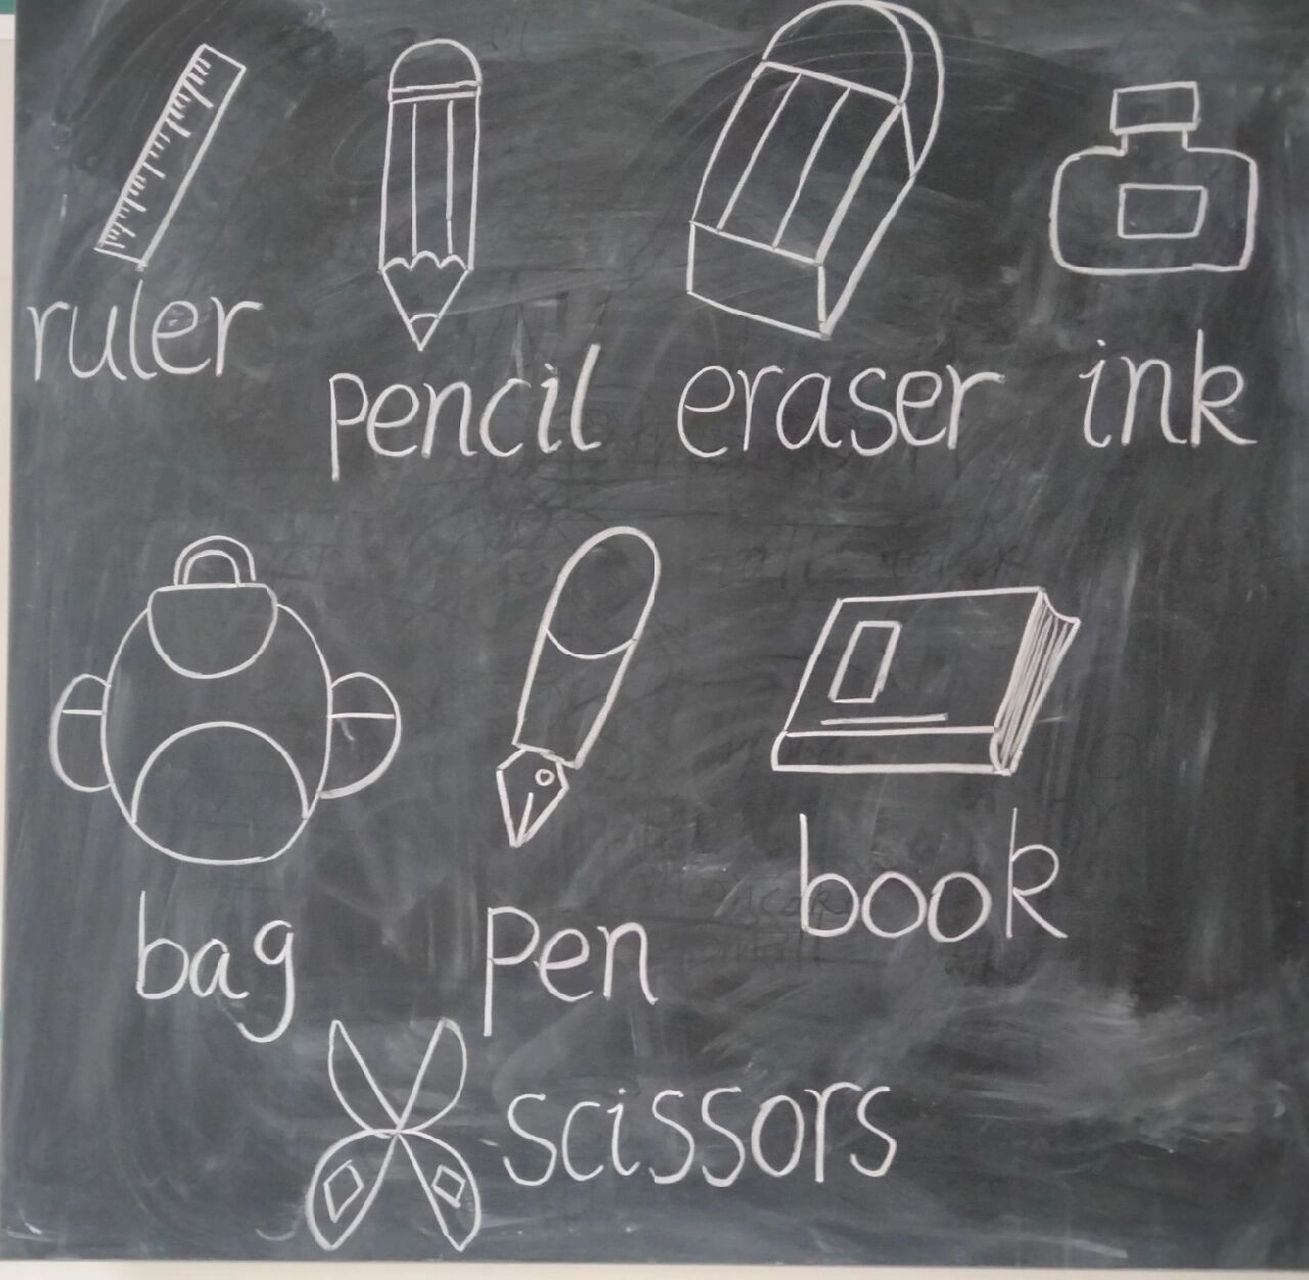 ruler pencil eraser ink
bag pen book
scissors